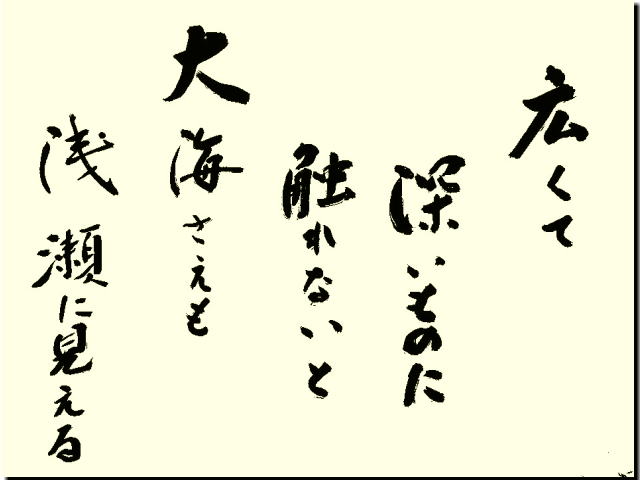 広くて
深いものに
触れないと
大海さえも
浅瀬に見える